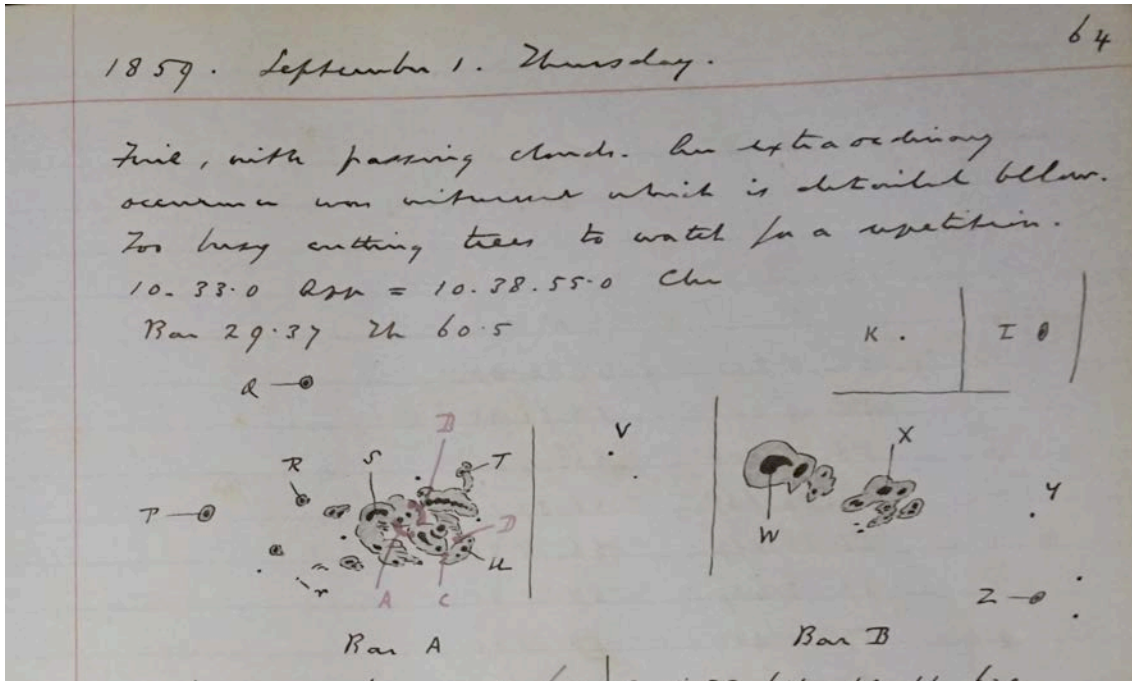 64
1859. September 1. Thursday.
Fine, with passing clouds. An extraordinary
occurrence was witnessed which is detailed below.
Too busy cutting trees to watch for a repetition.
10.33.0 App = 10.38.55.0 Chr
Bar 29.37 Th 60.5
K I
Q
B V X
R S T
P Y
D W
U
r A C Z
Bar A Bar B